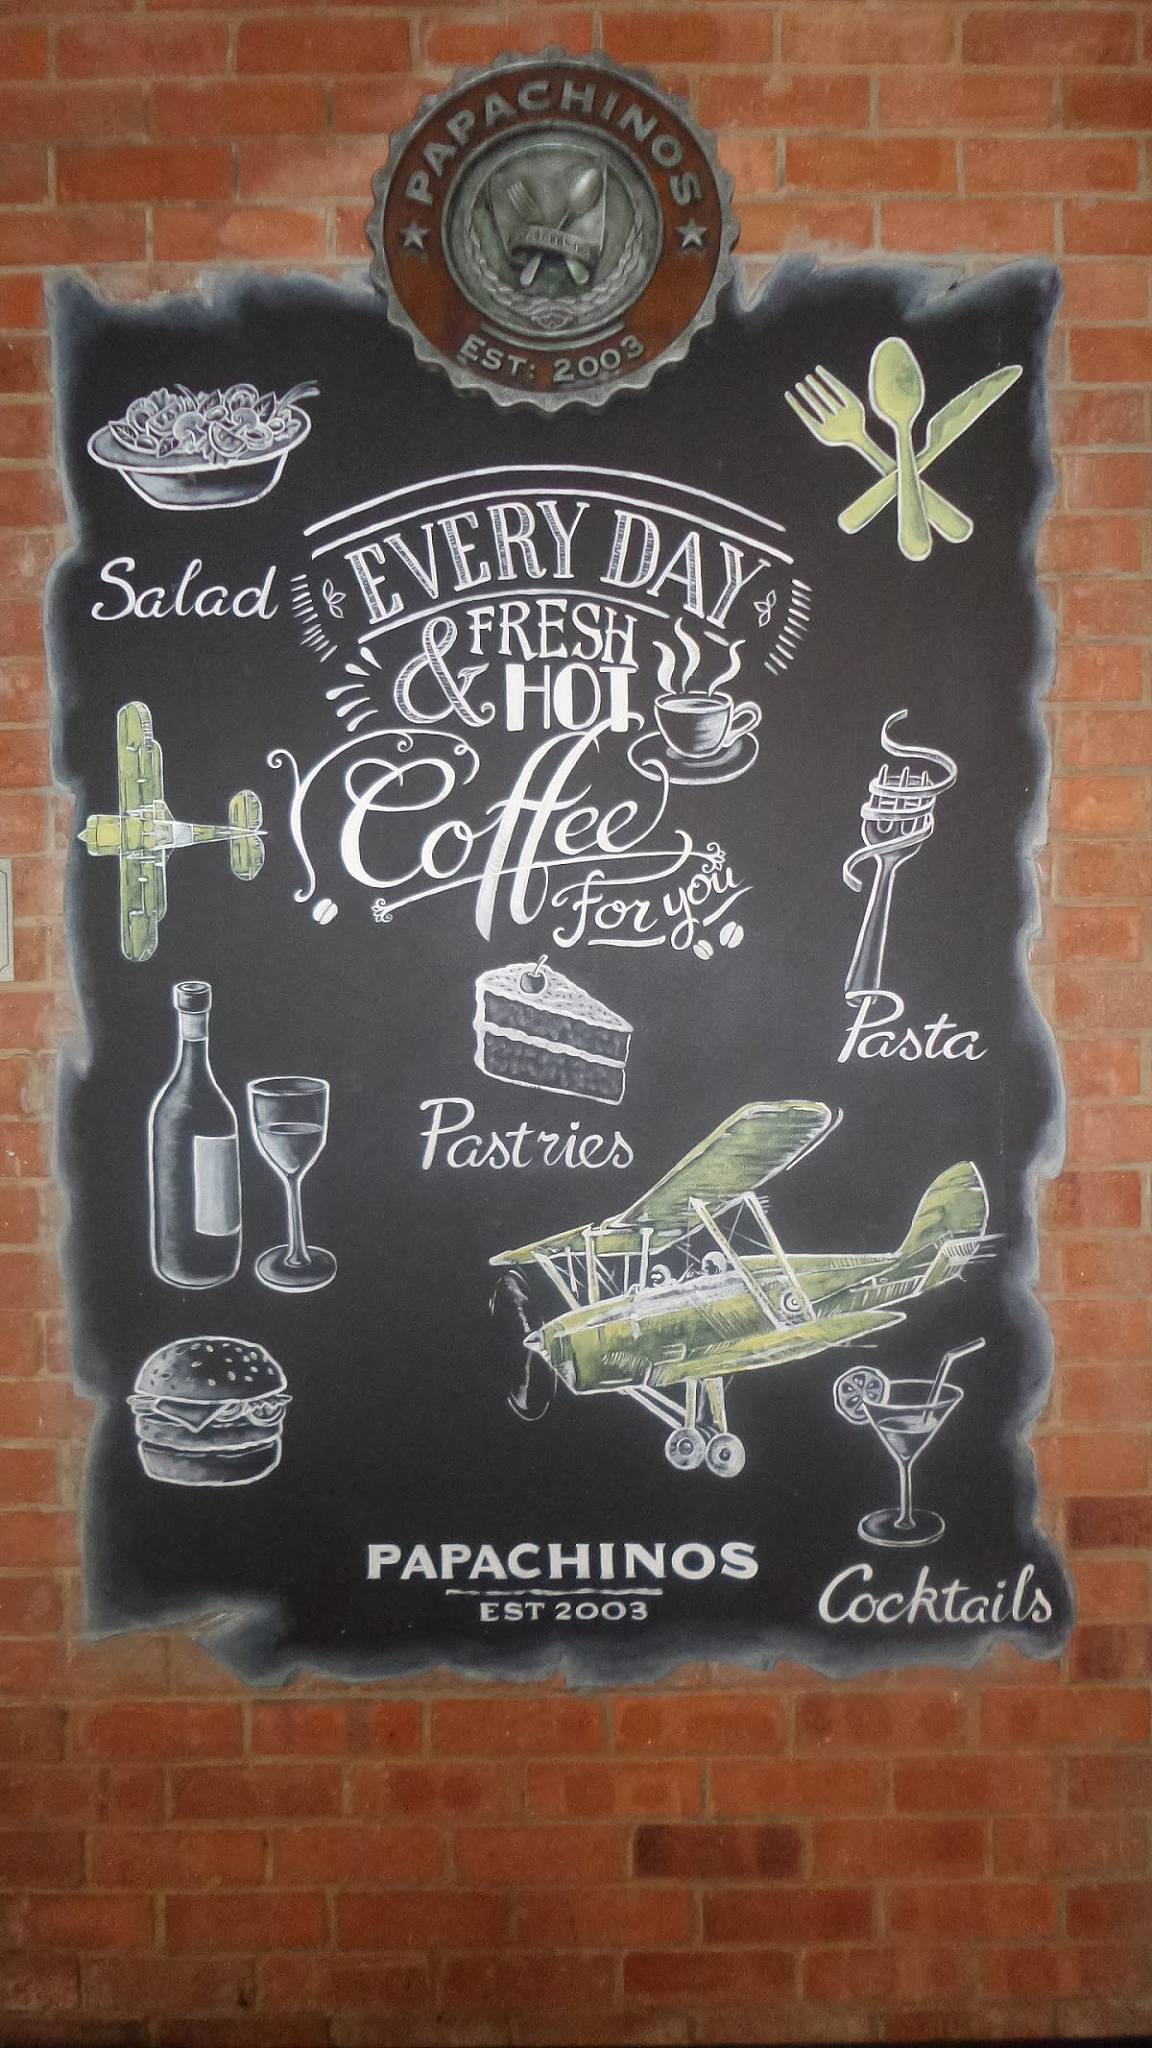 PAPACHINOS
EST: 2003
EVERY DAY
FRESH
& HOT
Coffee
For you
Salad
Pasta
Pastries
PAPACHINOS
EST 2003
Cocktails